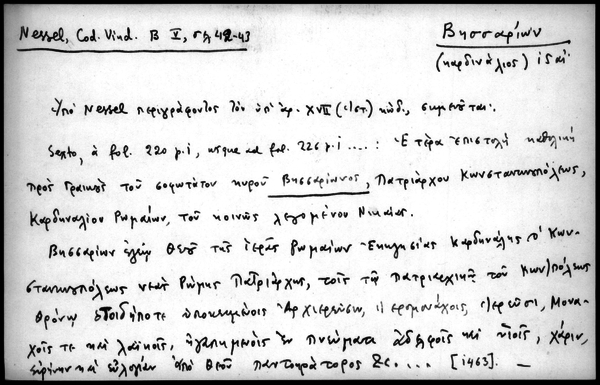 Nessel, Cod. Vind. B V, σελ 42-43
Βησσαρίων
(καρδινάλιος) ἰδαί.
Ὑπό Nessel περιγράφοντος τόν ὑπ' ἀρ. XVII (ἱστ.) κώδ., σημειοῦται:
Sexto, à fol. 220 p.i, usque ad fol. 226 p.i ....: Ἑτέρα ἐπιστολή καθολική
πρός Γραικούς τοῦ σοφωτάτου κυροῦ Βησσαρίωνος, Πατριάρχου Κωνσταντινουπόλεως,
Καρδηναλίου Ρωμαίων, τοῦ κοινῶς λεγομένου Νικαίας.
Βησσαρίων ἐλέῳ Θεοῦ τῆς ἱερᾶς Ῥωμαίων Ἐκκλησίας Καρδηνάλης ὁ Κων-
σταντινουπόλεως νέας Ρώμης Πατριάρχης, τοῖς τῷ Πατριαρχικῷ τοῦ Κων)πόλεως
θρόνῳ ὁποιδήποτε ὑποκειμένοις Ἀρχιερεῦσιν, ἱερομονάχοις, ἱερεῦσι, Μονα-
χοῖς τε καί λαϊκοῖς, ἠγαπημένοις ἐν πνεύματι ἀδελφοῖς καί υἱοῖς, χάριν,
εἰρήνην καί εὐλογίαν ἀπό Θεοῦ παντοκράτορος &c.... [1463]. —